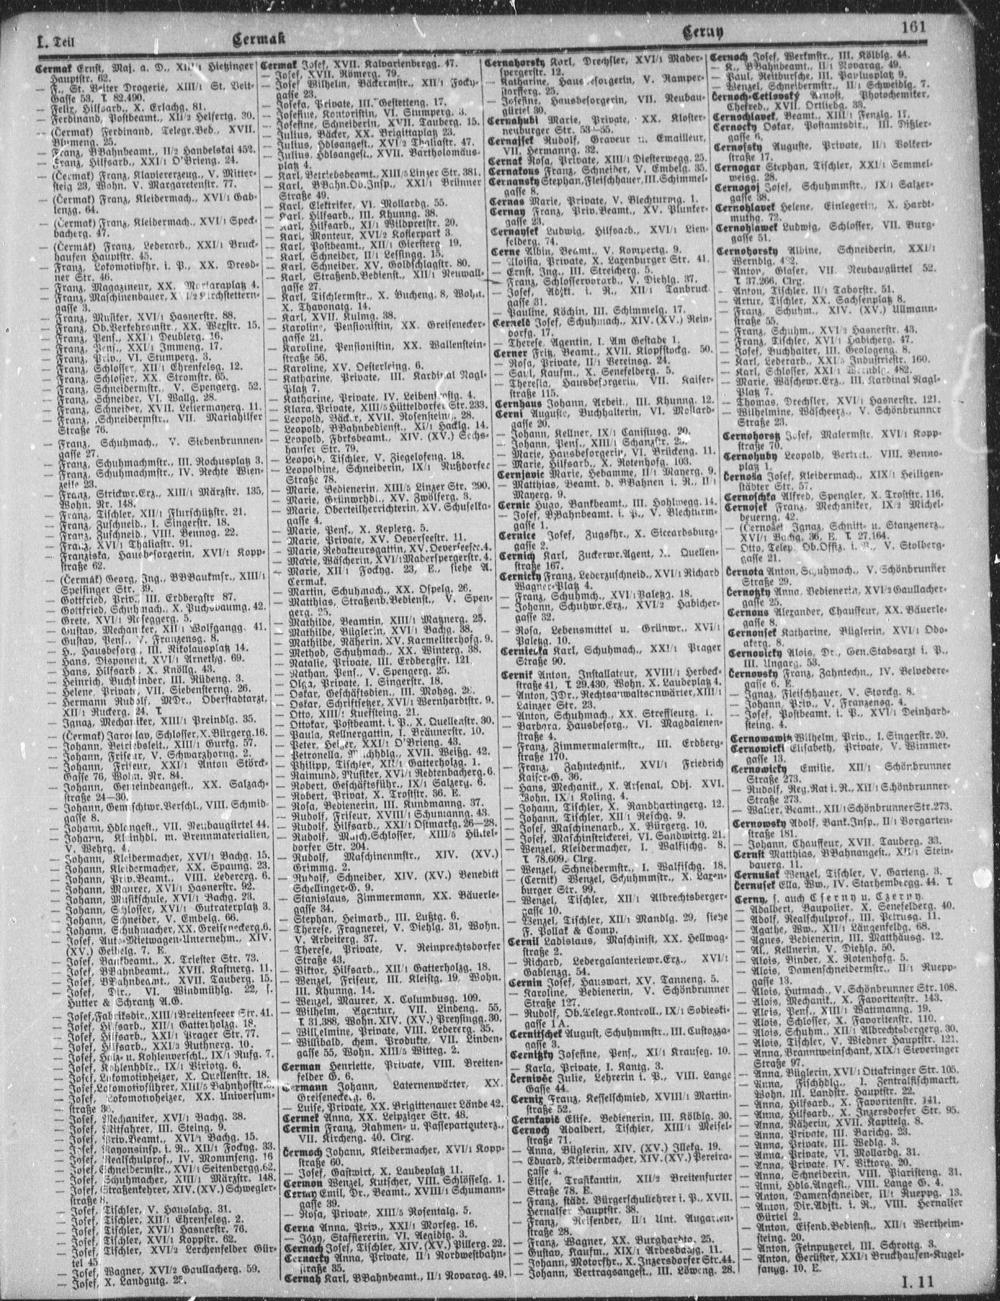 I. Teil
Cermak
Cerny
161
Cermak Ernst, Maj. a. D., XIII/1 Hietzinger
Hauptstr. 62.
— F., St. Veiter Drogerie, XIII/1 St. Veit-
Gasse 53, T 82.490.
— Felix, Hilfsarb., X. Erlachg. 81.
— Ferdinand, Postbeamt., XII/2 Helfertg. 30.
— (Čermak) Ferdinand, Telegr.Bed., XVII.
Blumeng. 25.
— Franz, BBahnbeamt., II/2 Handelskai 452.
— Franz, Hilfsarb., XXI/1 O'Brieng. 24.
— (Čermak) Franz, Klaviererzeug., V. Mitter-
steig 23, Wohn. V. Margaretenstr. 77.
— (Čermak) Franz, Kleidermach., XVI/1 Gab-
lenzg. 64.
— (Čermak) Franz, Kleidermach., XVI/1 Speck-
bacherg. 47.
— (Čermák) Franz, Lederarb., XXI/1 Bruck-
haufen Hauptstr. 45.
— Franz, Lokomotivfhr. i. P., XX. Dresd-
ner Str. 46.
— Franz, Magazineur, XX. Mortaraplatz 4.
— Franz, Musiker, XVI/1 Hasnerstr. 88.
— Franz, Ob.Verkehrsmstr., XX. Wexstr. 15.
— Franz, Pens., XXI/1 Deublerg. 16.
— Franz, Priv., VI. Stumperg. 3.
— Franz, Schlosser, XII/1 Ehrenfelsg. 12.
— Franz, Schlosser, XX. Stromstr. 65.
— Franz, Schneidermstr., V. Spengerg. 52.
— Franz, Schneider, VI. Wallg. 28.
— Franz, Schneidermstr., VII. Mariahilfer
Straße 76.
— Franz, Schuhmach., V. Siebenbrunnen-
gasse 27.
— Franz, Schuhmachmstr., III. Rochusplatz 3.
— Franz, Schuhmachmstr., IV. Rechte Wien-
zeile 23.
— Franz, Strickwr.Erz., XIII/1 Märzstr. 135,
Wohn. Nr. 148.
— Franz, Tischler, XII/1 Flurschützstr. 21.
— Franz, Zuschneid., I. Singerstr. 18.
— Franz, Zuschneid., VIII. Bennog. 22.
— Franz, XVI/1 Thaliastr. 91.
— Franziska, Hausbesorgerin, XVI/1 Kopp-
straße 62.
— (Čermák) Georg, Ing., BBBaukmstr., XIII/1
Speisinger Str. 39.
— Gottfried, Priv., III. Erdbergstr 87.
— Gottfried, Schuhmach., X. Puchsbaumg. 42.
— Grete, XVI/1 Roseggerg. 5.
— Gustav, Mechaniker, XII/1 Wolfgangg. 41.
— Gustav, Pens., V. Franzensg. 8.
— H., Hausbesorg., III. Nikolausplatz 14.
— Hans, Disponent, XVI/1 Arnethg. 69.
— Hans, Hilfsarb., X. Knöllg. 43.
— Heinrich, Buchbinder, III. Rübeng. 3.
— Helene, Private, VII. Siebensterng. 26.
— Hermann Rudolf, MDr., Oberstabsarzt,
XII/1 Ruckerg. 24. T
— Ignaz, Mechaniker, XIII/1 Preindlg. 35.
— (Čermak) Jaroslav, Schlosser, X. Bürgerg. 16.
— Johann, Frieseur, V. Schwarzhorng. 2.
— Johann, Friseur, XXI/1 Anton Störck-
Gasse 76, Wohn. Nr. 84.
— Johann, Gemeindeangest., XX. Salzach-
straße 24—30.
— Johann, Gemischtwr.Verschl., VIII. Schmid-
gasse 8.
— Johann, Hdlsangest., VII. Neubaugürtel 44.
— Johann, Kleinhdl. m. Brennmaterialien,
V. Wehrg. 4.
— Johann, Kleidermacher, XVI/1 Bachg. 15.
— Johann, Kleidermacher, XX. Spaung. 23.
— Johann, Priv.Beamt., VIII. Ledererg. 6.
— Johann, Maurer, XVI/1 Hasnerstr. 92.
— Johann, Musikschule, XVI/1 Bachg. 23.
— Johann, Schneider, VI. Embelg. 66.
— Johann, Schuhmacher, XX. Greiseneckerg. 6.
— Josef, Auto-Mietwagen-Unternehm., XIV.
(XV.) Gelbelg. 7. E.
— Josef, Bankbeamt., X. Triester Str. 73.
— Josef, BBahnbeamt., XVII. Kastnerg. 11.
— Josef, BBahnbeamt., XVII. Tauberg. 15.
— Josef, Dir., VI. Windmühlg. 22, s.
Hutter & Schrantz A.G.
— Josef, Fabriksdir., XIII/1 Breitenseer Str. 41.
— Josef, Hilfsarb., XII/1 Gatterholzg. 18.
— Josef, Hilfsarb., XXI/1 Prager Str. 77.
— Josef, Hilfsarb., XXI/3 Ruthnerg. 10.
— Josef, Holz- u. Kohlenverschl., IX/1 Rufg. 7.
— Josef, Kohlenhdlr., IX/1 Viriotg. 6.
— Josef, Lokomotivheizer, X. Quellenstr. 18.
— Josef, Lokomotivführer, XII/3 Bahnhofstr.
— Josef, Lokomotivheizer, XX. Universum-
straße 36.
— Josef, Mechaniker, XVI/1 Bachg. 38.
— Josef, Mitfahrer, III. Steing. 9.
— Josef, Priv.Beamt., XVI/1 Bachg. 15.
— Josef, Rayonsinsp. i. R., XII/1 Fochyg. 33.
— Josef, Realschulprof., IV. Mommseng. 16
— Josef, Schneidermstr., XVI/1 Seitenbergg. 62.
— Josef, Schuhmacher, XIII/1 Märzstr. 148.
— Josef, Straßenkehrer, XIV. (XV.) Schwegler-
— Josef, Tischler, V. Hauslabg. 31.
— Josef, Tischler, XII/1 Ehrenfelsg. 2.
— Josef, Tischler, XVI/1 Hasnerstr. 76.
— Josef, Tischler, XVI/1 Koppstr. 62.
— Josef, Tischler, XVI/2 Lerchenfelder Gür-
tel 45
— Josef, Wagner, XVI/2 Gaullacherg. 59.
— Josef, X. Landgutg.
Cermak Josef, XVII. Kalvarienbergg. 47.
— Josef, XVII. Römerg. 79.
— Josef Wilhelm, Bäckermstr., XII/1 Fochy-
gasse 23.
— Josefa, Private, III. Gestetteng. 17.
— Josefine, Kontoristin, VI. Stumperg. 3.
— Josefine, Schneiderin, XVII. Tauberg. 15.
— Julius, Bäcker, XX. Brigittaplatz 23.
— Julius, Hdlsangest., XVI/2 Thaliastr. 47.
— Julius, Hdlsangest., XVII. Bartholomäus-
platz 4.
— Karl, Betriebsbeamt., XIII/5 Linzer Str. 381.
— Karl, BBahn.Ob.Insp., XXI/1 Brünner
Straße 49.
— Karl, Elektriker, VI. Mollardg. 55.
— Karl, Hilfsarb., III. Khunng. 38.
— Karl, Hilfsarb., XI/1 Wildpretstr. 20.
— Karl, Monteur, XVI/2 Koflerpark 3.
— Karl, Postbeamt., XII/1 Gierstérg. 19.
— Karl, Schneider, II/1 Lessingg. 15.
— Karl, Schneider, XV. Goldschlagstr. 80.
— Karl, Straßenb.Bedienst., XII/1 Neuwall-
gasse 27.
— Karl, Tischlermstr., X. Bucheng. 8, Wohn.
X. Thavonatg. 14.
— Karl, XVII. Kulmg. 38.
— Karoline, Pensionistin, XX. Greisenecker-
gasse 21.
— Karoline, Pensionistin, XX. Wallenstein-
straße 56.
— Karoline, XV. Oesterleing. 6.
— Katharine, Private, III. Kardinal Nagl-
Platz 7.
— Katharine, Private, IV. Leibenfrostg. 4.
— Klara, Private, XIII/5 Hütteldorfer Str. 233.
— Leopold, Bäcker, XVII. Rosensteing. 28.
— Leopold, BBahnbedienst., XI/1 Hacklg. 14.
— Leopold, Fbrksbeamt., XIV. (XV.) Sechs-
hauser Str. 79.
— Leopold, Tischler, V. Ziegelofeng. 18.
— Leopoldine, Schneiderin, IX/1 Nußdorfer
Straße 78.
— Marie, Bedienerin, XIII/5 Linzer Str. 290.
— Marie, Grünwrhdl., XV. Zwölferg. 3.
— Marie, Oberteilherrichterin, XV. Schuselka-
gasse 4.
— Marie, Pens., X. Keplerg. 5.
— Marie, Private, XV. Oeverseestr. 11.
— Marie, Redakteursgattin, XV. Oeverseestr. 4.
— Marie, Wäscherin, XVI/1 Maderspergerstr. 4.
— Marie, XII/1 Fochyg. 23, E., siehe A.
Cermak.
— Martin, Schuhmach., XX. Ospelg. 26.
— Matthias, Straßenb.Bedienst., V. Spen-
gerg. 25.
— Mathilde, Beamtin, XIII/1 Matznerg. 25.
— Mathilde, Büglerin, XVI/1 Bachg. 38.
— Mathilde, Näherin, XV. Karmeliterhofg. 9.
— Method, Schuhmach., XX. Winterg. 38.
— Natalie, Private, III. Erdbergstr. 121
— Nathan, Pens., V. Spengerg. 25.
— Olga, Private, I. Singerstr. 18.
— Oskar, Geschäftsdien., III. Mohsg. 26.
— Oskar, Schriftsetzer, XVI/1 Wernhardtstr. 9.
— Otto, XIII/1 Kuefsteing. 21.
— Ottokar, Postbeamt. i. P., X. Quellenstr. 30.
— Paula, Kellnergattin, I. Bräunerstr. 10.
— Peter, Heizer, XXI/1 O'Brieng. 43.
— Petronella, Milchhdla., XVII. Weißg. 42.
— Philipp, Tischler, XII/1 Gatterholzg. 1.
— Raimund, Musiker, XVI/1 Redtenbacherg. 6.
— Robert, Geschäftsführ., IX/1 Salzerg. 6.
— Robert, Privat, X. Troststr. 36. E.
— Rosa, Bedienerin, III. Kundmanng. 37.
— Rudolf, Friseur, XVII. Schumanng. 43.
— Rudolf, Hilfsarb., XXI/1 Ostmarkg. 26—28.
— Rudolf, Masch.Schlosser, XIII/5 Hüttel-
dorfer Str. 204.
— Rudolf, Maschinenmstr., XIV. (XV.)
Grimmg. 2.
— Rudolf, Schneider, XIV. (XV.) Benedikt
Schellinger-G. 9.
— Stanislaus, Zimmermann, XX. Bäuerle-
gasse 34.
— Stephan, Heimarb., III. Lußtg. 6.
— Therese, Fragnerei, V. Diehlg. 31, Wohn.
V. Arbeiterg. 37.
— Therese, Private, V. Reinprechtsdorfer
Straße 43.
— Viktor, Hilfsarb., XII/1 Gatterholzg. 18.
— Wenzel, Friseur, III. Kleistg. 19, Wohn.
III. Khunng. 14.
— Wenzel, Maurer, X. Columbusg. 109.
— Wilhelm, Agentur, VII. Lindeng. 55,
T 31.388, Wohn. XIV. (XV.) Preysingg. 30.
— Wilhelmine, Private, VIII. Ledererg. 35.
— Willibald, chem. Produkte, VII. Linden-
gasse 55, Wohn. XIII/5 Witteg. 2.
Cerman Henriette, Private, VIII. Breiten-
felder G. 6.
Cermann Johann, Laternenwärter, XX.
Greiseneckerg. 6.
— Luise, Private, XX. Brigittenauer Lände 42.
Cermek Anna, XX. Leipziger Str. 48.
Cermin Franz, Rahmen- u. Passepartouterz.,
VII. Kircheng. 40. Clrg.
Čermoch Johann, Kleidermacher, XVI/1 Kopp-
straße 60.
— Josef, Gastwirt, X. Laubeplatz 11.
Cermon Wenzel, Kutscher, VIII. Schlösselg. 1.
Cernay Emil, Dr., Beamt., XVIII/1 Schumann-
gasse 39.
— Rosa, Private, XIII/5 Rosentalg. 5.
Cerna Anna, Priv., XXI/1 Morseg. 16.
— Jözy, Staffiererin, VI. Aegidig. 3.
Cernach Josef, Tischler, XIV. (XV.) Pillerg. 22.
Cernacky Anna, Private, II/1 Nordwestbahn-
straße 35.
Cernah Karl, BBahnbeamt., II/1 Novarag. 49.
Cernahorsky Karl, Drechsler, XVI/1 Mader-
spergerstr. 12.
— Katharine, Hausbesorgerin, V. Ramper-
storfferg. 25.
— Josefine, Hausbesorgerin, VII. Neubau-
gürtel 30.
Cernahudi Marie, Private, XX. Kloster-
neuburger Str. 53—55.
Cernajsek Rudolf, Graveur u. Emailleur,
VII. Hermanng. 32.
Cernak Rosa, Private, XIII/1 Diesterwegg. 25.
Cernakous Franz, Schneider, V. Embelg. 35.
Cernansky Stephan, Fleischhauer, III. Schimmel-
gasse 8.
Cernas Marie, Private, V. Blechturmg. 1.
Cernay Franz, Priv.Beamt., XV. Plunker-
gasse 23.
Cernaysek Ludwig, Hilfsarb., XVI/1 Lien-
felderg. 74.
Cerne Albin, Beamt., V. Kompertg. 9.
— Aloisia, Private, X. Laxenburger Str. 41.
— Ernst, Ing., III. Streicherg. 5.
— Franz, Schlosservorarb., V. Diehlg. 37.
— Josef, Adjkt. i. R., XII/1 Tanbruck-
gasse 31.
— Pauline, Köchin, III. Schimmelg. 17.
Cerneld Josef, Schuhmach., XIV. (XV.) Rein-
dorfg. 17.
— Therese, Agentin, I. Am Gestade 1.
Cerner Fritz, Beamt., XVII. Klopstockg. 50.
— Rosa, Private, II/1 Vereinsg. 24.
— Sal., Kaufm., X. Senefelderg. 5.
— Theresia, Hausbesorgerin, VII. Kaiser-
straße 115.
Cernhaus Johann, Arbeit., III. Khunng. 12.
Cerni Auguste, Buchhalterin, VI. Mollard-
gasse 20.
— Johann, Kellner, IX/1 Canisiusg. 20.
— Johann, Pens., XIII/1 Schanzstr. 25.
— Marie, Hausbesorgerin, VI. Brückeng. 11.
— Marie, Hilfsarb., X. Rotenhofg. 103.
Cernjavic Marie, Hebamme, II/1 Mayerg. 9.
— Matthias, Beamt. d. BBahnen i. R., II/1
Mayerg. 9.
Cernic Hugo, Bankbeamt., III. Hohlwegg. 14.
— Josef, BBahnbeamt. i. P., V. Blechturm-
gasse 1.
Cernice Josef, Zugsfhr., X. Siccardsburg-
gasse 2.
Cernich Karl, Zuckerwr.Agent, X. Quellen-
straße 167.
Cernicky Franz, Lederzuschneid., XVI/1 Richard
Wagner-Platz 4.
— Franz, Schuhmach., XVI/1 Paletzg. 18.
— Johann, Schuhwr.Erz., XVI/2 Habicher-
gasse 32.
— Rosa, Lebensmittel u. Grünwr., XVI/1
Paletzg. 10.
Cerniecka Karl, Schuhmach., XXI/1 Prager
Straße 90.
Cernik Anton, Installatur, XVIII/1 Herbeck-
straße 41, T 29.430, Wohn. X. Laubeplatz 4.
— Anton, JDr., Rechtsanwaltsanwärter, XIII/1
Lainzer Str. 23.
— Anton, Schuhmach., XX. Streffleurg. 1.
— Barbara, Hausbesorg., VI. Magdalenen-
straße 4.
— Franz, Zimmermalermstr., III. Erdberg-
straße 170.
— Franz, Zahntechnit., XVI/1 Friedrich
Kaiser-G. 36.
— Hans, Mechanik., X. Arsenal, Obj. XVI.
Wohn. IX/1 Koling. 4.
— Johann, Tischler, X. Randhartingerg. 12.
— Johann, Tischler, XII/1 Reschg. 9.
— Josef, Maschinenarb., X. Bürgerg. 10.
— Josef, Maschinstrickerei, VI. Sandwirtg. 21.
— Wenzel, Kleidermacher, I. Walfischg. 8.
T 78.609. Clrg.
— Wenzel, Schneidermstr., I. Walfischg. 18.
— (Cernit) Wenzel, Schuhmstr., X. Laxen-
burger Str. 99.
— Wenzel, Tischler, XII/1 Albrechtsberger-
gasse 10.
— Wenzel, Tischler, XII/1 Mandlg. 29, siehe
F. Pollak & Comp.
Cernil Ladislaus, Maschinist, XX. Hellwag-
straße 2.
— Richard, Ledergalanteriewr.Erz., XVI/1
Gablenzg. 54.
Cernin Josef, Hauswart, XV. Tanneng. 5.
— Karoline, Bedienerin, V. Schönbrunner
Straße 127.
— Rudolf, Ob.Telegr.Kontroll., IX/1 Sobieski-
gasse 1 A.
Cernitschek August, Schuhmstr., III. Custozza-
gasse 3.
Cernitzky Josefine, Pens., XI/1 Krausseg. 10.
— Karla, Private, I. Kantg. 3.
Černivec Julie, Lehrerin i. P., VIII. Lange
Gasse 44.
Cerniz Franz, Kesselschmied, XVIII/1 Martin-
straße 52.
Cerntavic Elise, Bedienerin, III. Kölblg. 30.
Cernoch Adalbert, Tischler, XIII/1 Meisel-
straße 71.
— Anna, Büglerin, XIV. (XV.) Jllekg. 19.
— Eduard, Kleidermacher, XIV. (XV.) Pereira-
gasse 4.
— Elise, Trafikantin, XII/2 Breitenfurter
Straße 78. E.
— Franz, städt. Bürgerschullehrer i. P., XVII.
Hernalser Hauptstr. 38.
— Franz, Reisender, II/1 Unt. Augarten-
straße 28.
— Franz, Wagner, XX. Burghardtg. 25.
— Gustav, Kaufm., XIX/1 Arbesbachg. 11.
— Johann, Motorfhr., X. Inzersdorfer Str. 44.
— Johann, Vertragsangest., III. Löweng. 28.
Cernoch Josef, Werkmstr., III. Kölblg. 44.
— K., BBahnbeamt., II/1 Novarag. 49.
— Paul, Reitbursche, III. Paulusplatz 9.
— Wenzel, Schneidermstr., II/1 Schweidlg. 7.
Černoch-Cetlovsky Arnost, Photochemiker,
Chefred., XVII. Ortliebg. 33.
Cernochlavek, Beamt., XIII/1 Fenzlg. 11.
Cernocky Oskar, Postamtsdir., III. Dißler-
gasse 6.
Cernofsky Auguste, Private, II/1 Volkert-
straße 17.
Cernogar Stephan, Tischler, XXI/1 Semmel-
weisg. 28.
Cernogoj Josef, Schuhmstr., IX/1 Salzer-
gasse 38.
Cernohlavek Helene, Einlegerin, X. Hardt-
muthg. 72.
Cernohlawek Ludwig, Schlosser, VII. Burg-
gasse 51.
Cernohorsky Albine, Schneiderin, XXI/1
Werndlg. 482.
— Anton, Glaser, VII. Neubaugürtel 52.
T 37.266, Clrg.
— Anton, Tischler, II/1 Taborstr. 51.
— Artur, Tischler, XX. Sachsenplatz 8.
— Franz, Schuhm., XIV. (XV.) Ullmann-
straße 55.
— Franz, Schuhm., XVI/2 Hasnerstr. 43.
— Franz, Tischler, XVI/1 Habicherg. 47.
— Josef, Buchhalter, III. Geologeng. 8.
— Karl, Lederarb., XXI/5 Industriestr. 160.
— Karl, Schlosser, XXI/1 Werndlg. 482.
— Marie, Wäschewr.Erz., III. Kardinal Nagl-
Platz 7.
— Thomas, Drechsler, XVI/1 Hasnerstr. 121.
— Wilhelmine, Wäscherz., V. Schönbrunner
Straße 23.
Cernohorsky Josef, Malermstr., XVI/1 Kopp-
straße 70.
Cernohuby Leopold, Vertret., VIII. Benno-
platz 1.
Černoša Josef, Kleidermach., XIX/1 Heiligen-
städter Str. 57.
Cernoschka Alfred, Spengler, X. Troststr. 116.
Cernosek Franz, Mechaniker, IX/2 Michel-
beuerng. 42.
— (Černošek) Ignaz, Schnitt- u. Stanzenerz.,
XVI/1 Bachg. 36, E. T 27.164.
— Otto, Telegr. Ob.Offiz. i. R., V. Stolberg-
gasse 21.
Černota Anton, Schuhmach., V. Schönbrunner
Straße 29.
Černotzky Anna, Bedienerin, XVI/2 Gaullacher-
gasse 25.
Cernous Alexander, Chauffeur, XX. Bäuerle-
gasse 8.
Cernousek Katharine, Büglerin, XVI/1 Odo-
akerg. 8.
Cernovicky Alois, Dr., Gen.Stabsarzt i. P.,
III. Ungarg. 53.
Černovsky Franz, Fachlehr., IV. Belvedere-
gasse 6. E.
— Ignaz, Fleischhauer, V. Storckg. 8.
— Johann, Priv., V. Franzensg. 4.
— Josef, Postbeamt. i. P., XVI/1 Deinhard-
steing. 4.
Cernowawis Wilhelm, Priv., I. Singerstr. 20.
Cernowicki Elisabeth, Private, V. Wimmer-
gasse 13.
Cernowicky Emilie, XII/1 Schönbrunner
Straße 273.
— Rudolf, Reg.Rat i. R., XII/1 Schönbrunner-
Straße 273.
— Walter, Beamt., XII/1 Schönbrunner Str. 273.
Cernowsky Adolf, Bank.Insp., II/1 Vorgarten-
straße 181.
— Johann, Chauffeur, XVII. Tauberg. 33.
Cernst Matthias, BBahnangest., XII/1 Stein-
bauerg. 11.
Cernušak Wenzel, Tischler, V. Garteng. 3.
Černusek Ella, Ww., IV. Starhembergg. 44. T
Cerny, s. auch Czerny u. Czerny.
— Adalbert, Baupolier, X. Senefelderg. 40.
— Adolf, Realschulprof., III. Petrusg. 11.
— Agathe, Ww., XII/1 Längenfeldg. 68.
— Agnes, Bedienerin, III. Matthäusg. 12.
— Al., Kellnerin, V. Diehlg. 50.
— Alois, Binder, X. Rotenhofg. 5.
— Alois, Damenschneidermstr., II/1 Ruepp-
gasse 13.
— Alois, Hutmach., V. Schönbrunner Str. 108.
— Alois, Mechanik., X. Favoritenstr. 143.
— Alois, Pens., XIII/1 Wattmanng. 19.
— Alois, Schlosser, X. Favoritenstr. 110.
— Alois, Schuhm., XII/1 Albrechtsbergerg. 30.
— Alois, Tischler, V. Wiedner Hauptstr. 121.
— Anna, Branntweinschank, XIX/1 Sieveringer
Straße 97.
— Anna, Büglerin, XVI/1 Ottakringer Str. 105.
— Anna, Fischhdlg., I. Zentralfischmarkt,
Wohn. III. Landstr. Hauptstr. 22.
— Anna, Hilfsarb., X. Favoritenstr. 141.
— Anna, Hilfsarb., X. Inzersdorfer Str. 95.
— Anna, Näherin, XVII. Kapitelg. 8.
— Anna, Private, III. Barichg. 23.
— Anna, Private, III. Wedlg. 3.
— Anna, Private, VI. Mollardg. 31.
— Anna, Private, IV. Viktorg. 20.
— Anna, Schneiderin, VIII. Piaristeng. 31.
— Anni, Hdls.Angest., VIII. Lange G. 4.
— Anton, Damenschneider, II/1 Rueppg. 13.
— Anton, Dir.Adjkt. i. R., VIII. Hernalser
Gürtel 2.
— Anton, Eisenb.Bedienst., XII/1 Wertheim-
steing. 20.
— Anton, Feinputzerei, III. Schrottg. 3.
— Anton, Gerüster, XXI/1 Bruckhaufen-Kugel-
fangg. 10. E.
I. 11